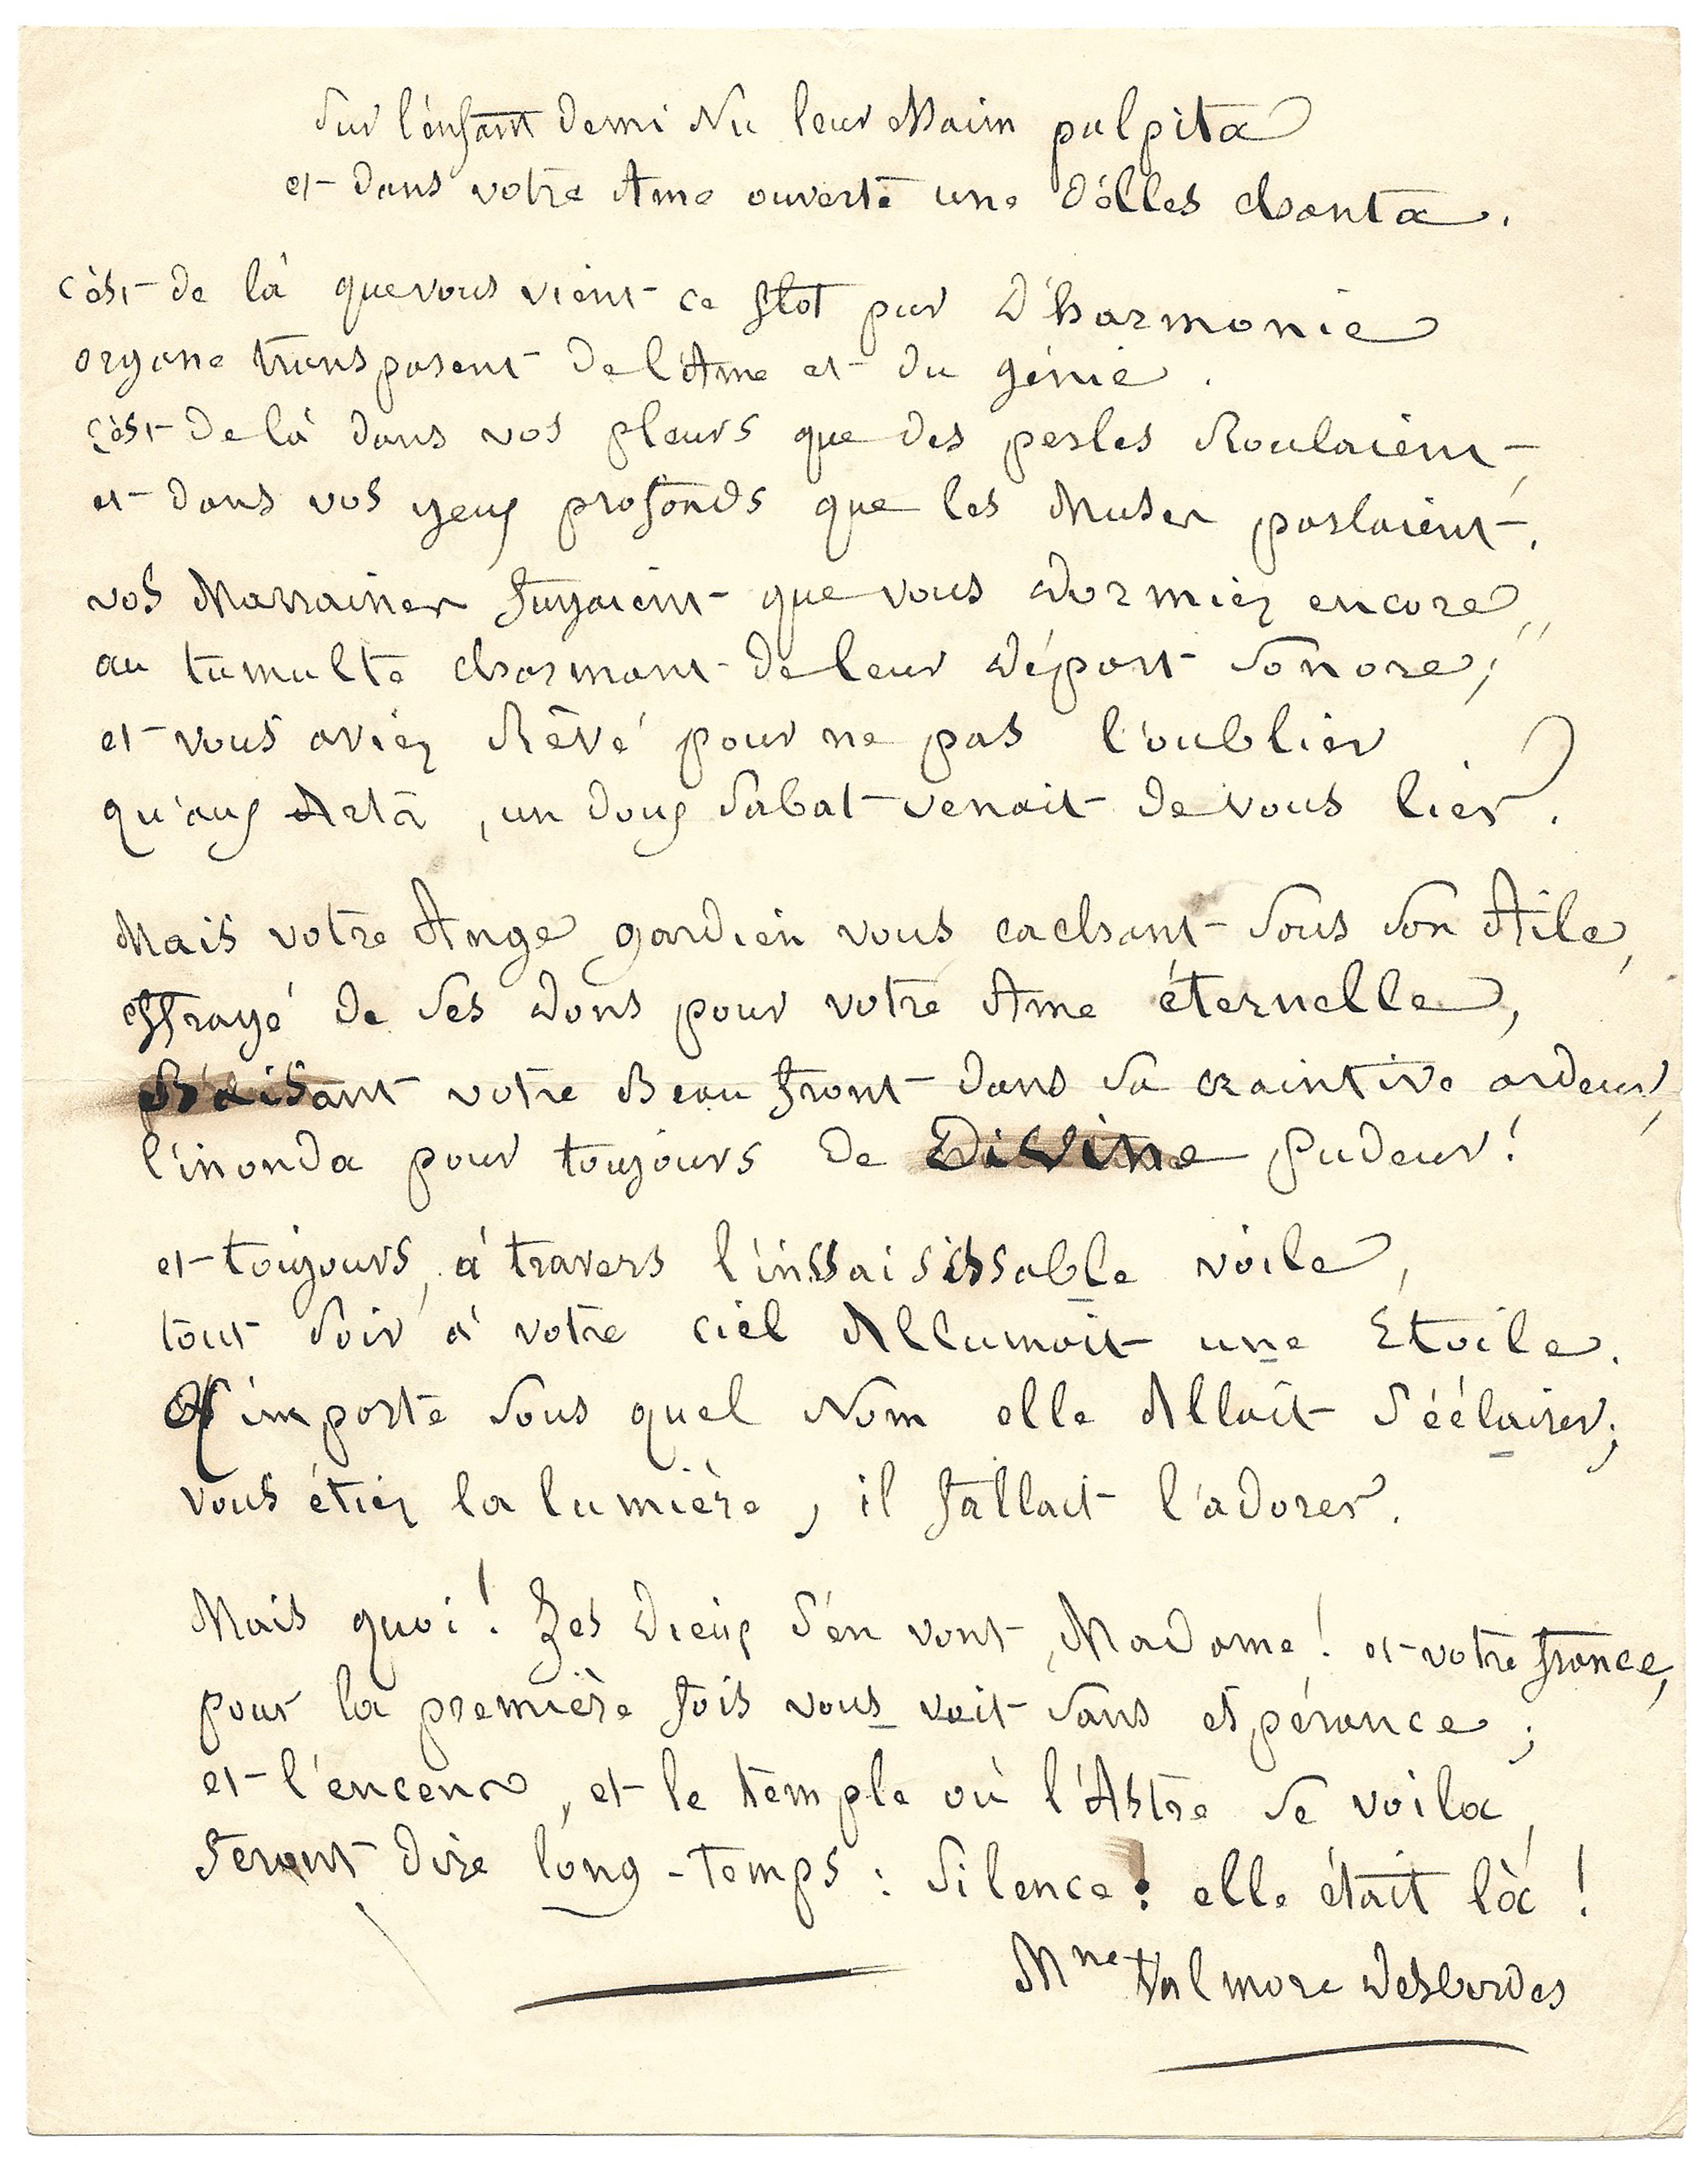 Sur l'enfant demi Nu leur Main palpita
et dans votre Ame ouverte une d'elles chanta.
c'est de là que vous vient ce flot pur D'harmonie
organe transparent de l'Ame et du génie.
c'est de là dans vos pleurs que des perles Roulaient,
et dans vos yeux profonds que les Muses parlaient.
vos Marraines fuyaient que vous dormiez encore,
au tumulte charmant de leur départ sonore;
et vous aviez Rêvé pour ne pas l'oublier
qu'aux Arts, un doux sabat venait de vous lier.
Mais votre Ange gardien vous cachant sous son Aile,
effrayé de ses dons pour votre Ame éternelle,
Baisant votre Beau front dans sa craintive ardeur,
l'inonda pour toujours de Divine Pudeur!
et toujours, à travers l'inssaisissable voile,
tout soir à votre ciel Allumait une Etoile.
N'importe sous quel Nom elle Allait s'éclairer;
vous étiez la lumière, il fallait l'adorer.
Mais quoi! Les Dieux s'en vont, Madame! et votre france,
pour la première fois vous voit sans espérance;
et l'encens, et le temple où l'Astre se voila,
feront dire long-temps: silence! elle était là!
Mme Valmore Desbordes